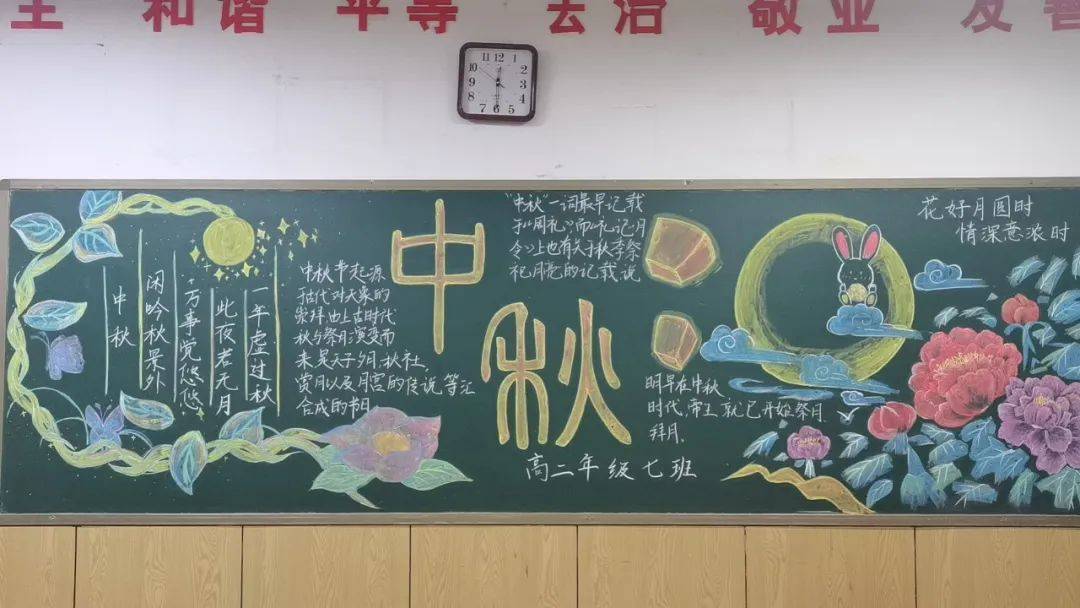 主 和谐 平等 法治 敬业 友善
12
11 1
10 2
9 3
8 4
7 6 5
中秋
闲吟秋景外
万事觉悠悠
此夜若无月
一年虚过秋
中秋节起源
于古代对天象的
崇拜由上古时代
秋与祭月演变而
来是天子夕月,秋社,
赏月以及月宫的传说,等汇
合成的节日
中秋
高二年级七班
"中秋"一词最早记载
于《周礼》而《礼记月
令》上也有关于秋季祭
祀月亮的记载,说
明早在中秋
时代,帝王就已开始祭月
拜月.
花好月圆时
情深意浓时